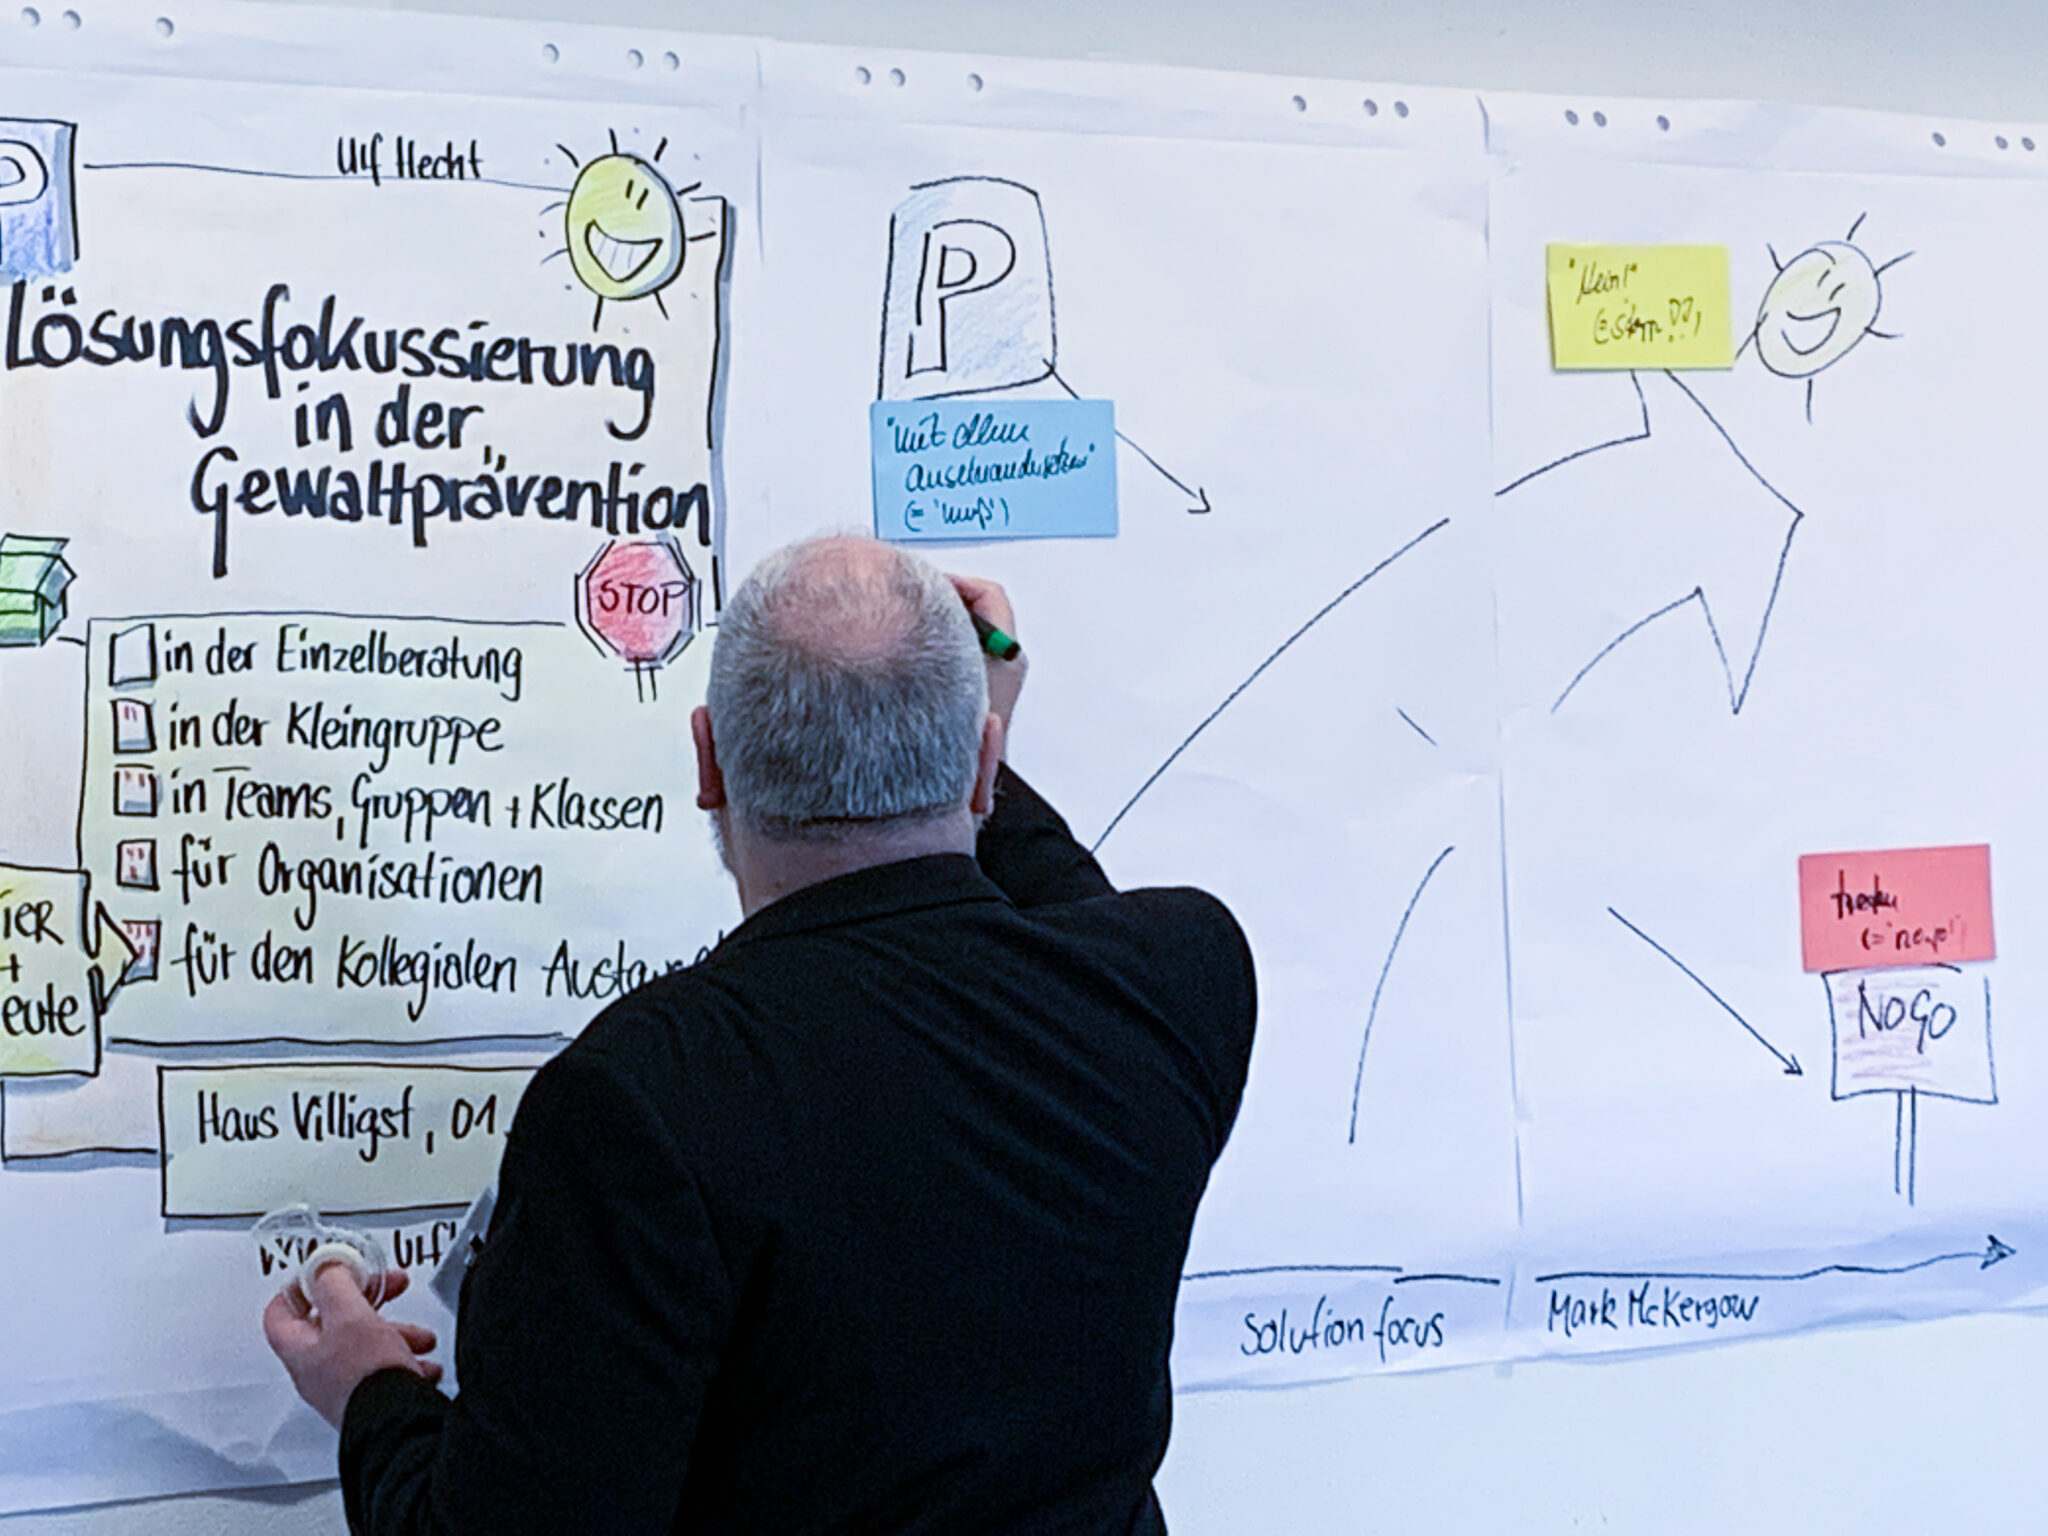 P
Ulf Hecht
Lösungsfokussierung
in der
Gewaltprävention
STOP
in der Einzelberatung
in der Kleingruppe
in Teams, Gruppen + Klassen
für Organisationen
für den Kollegialen
+
Haus Villigst, 01.
Ulf
P
"mit allem
auseinandersetzen"
(= 'muß')
"Nein!"
NOGO
Solution focus
Mark McKergow